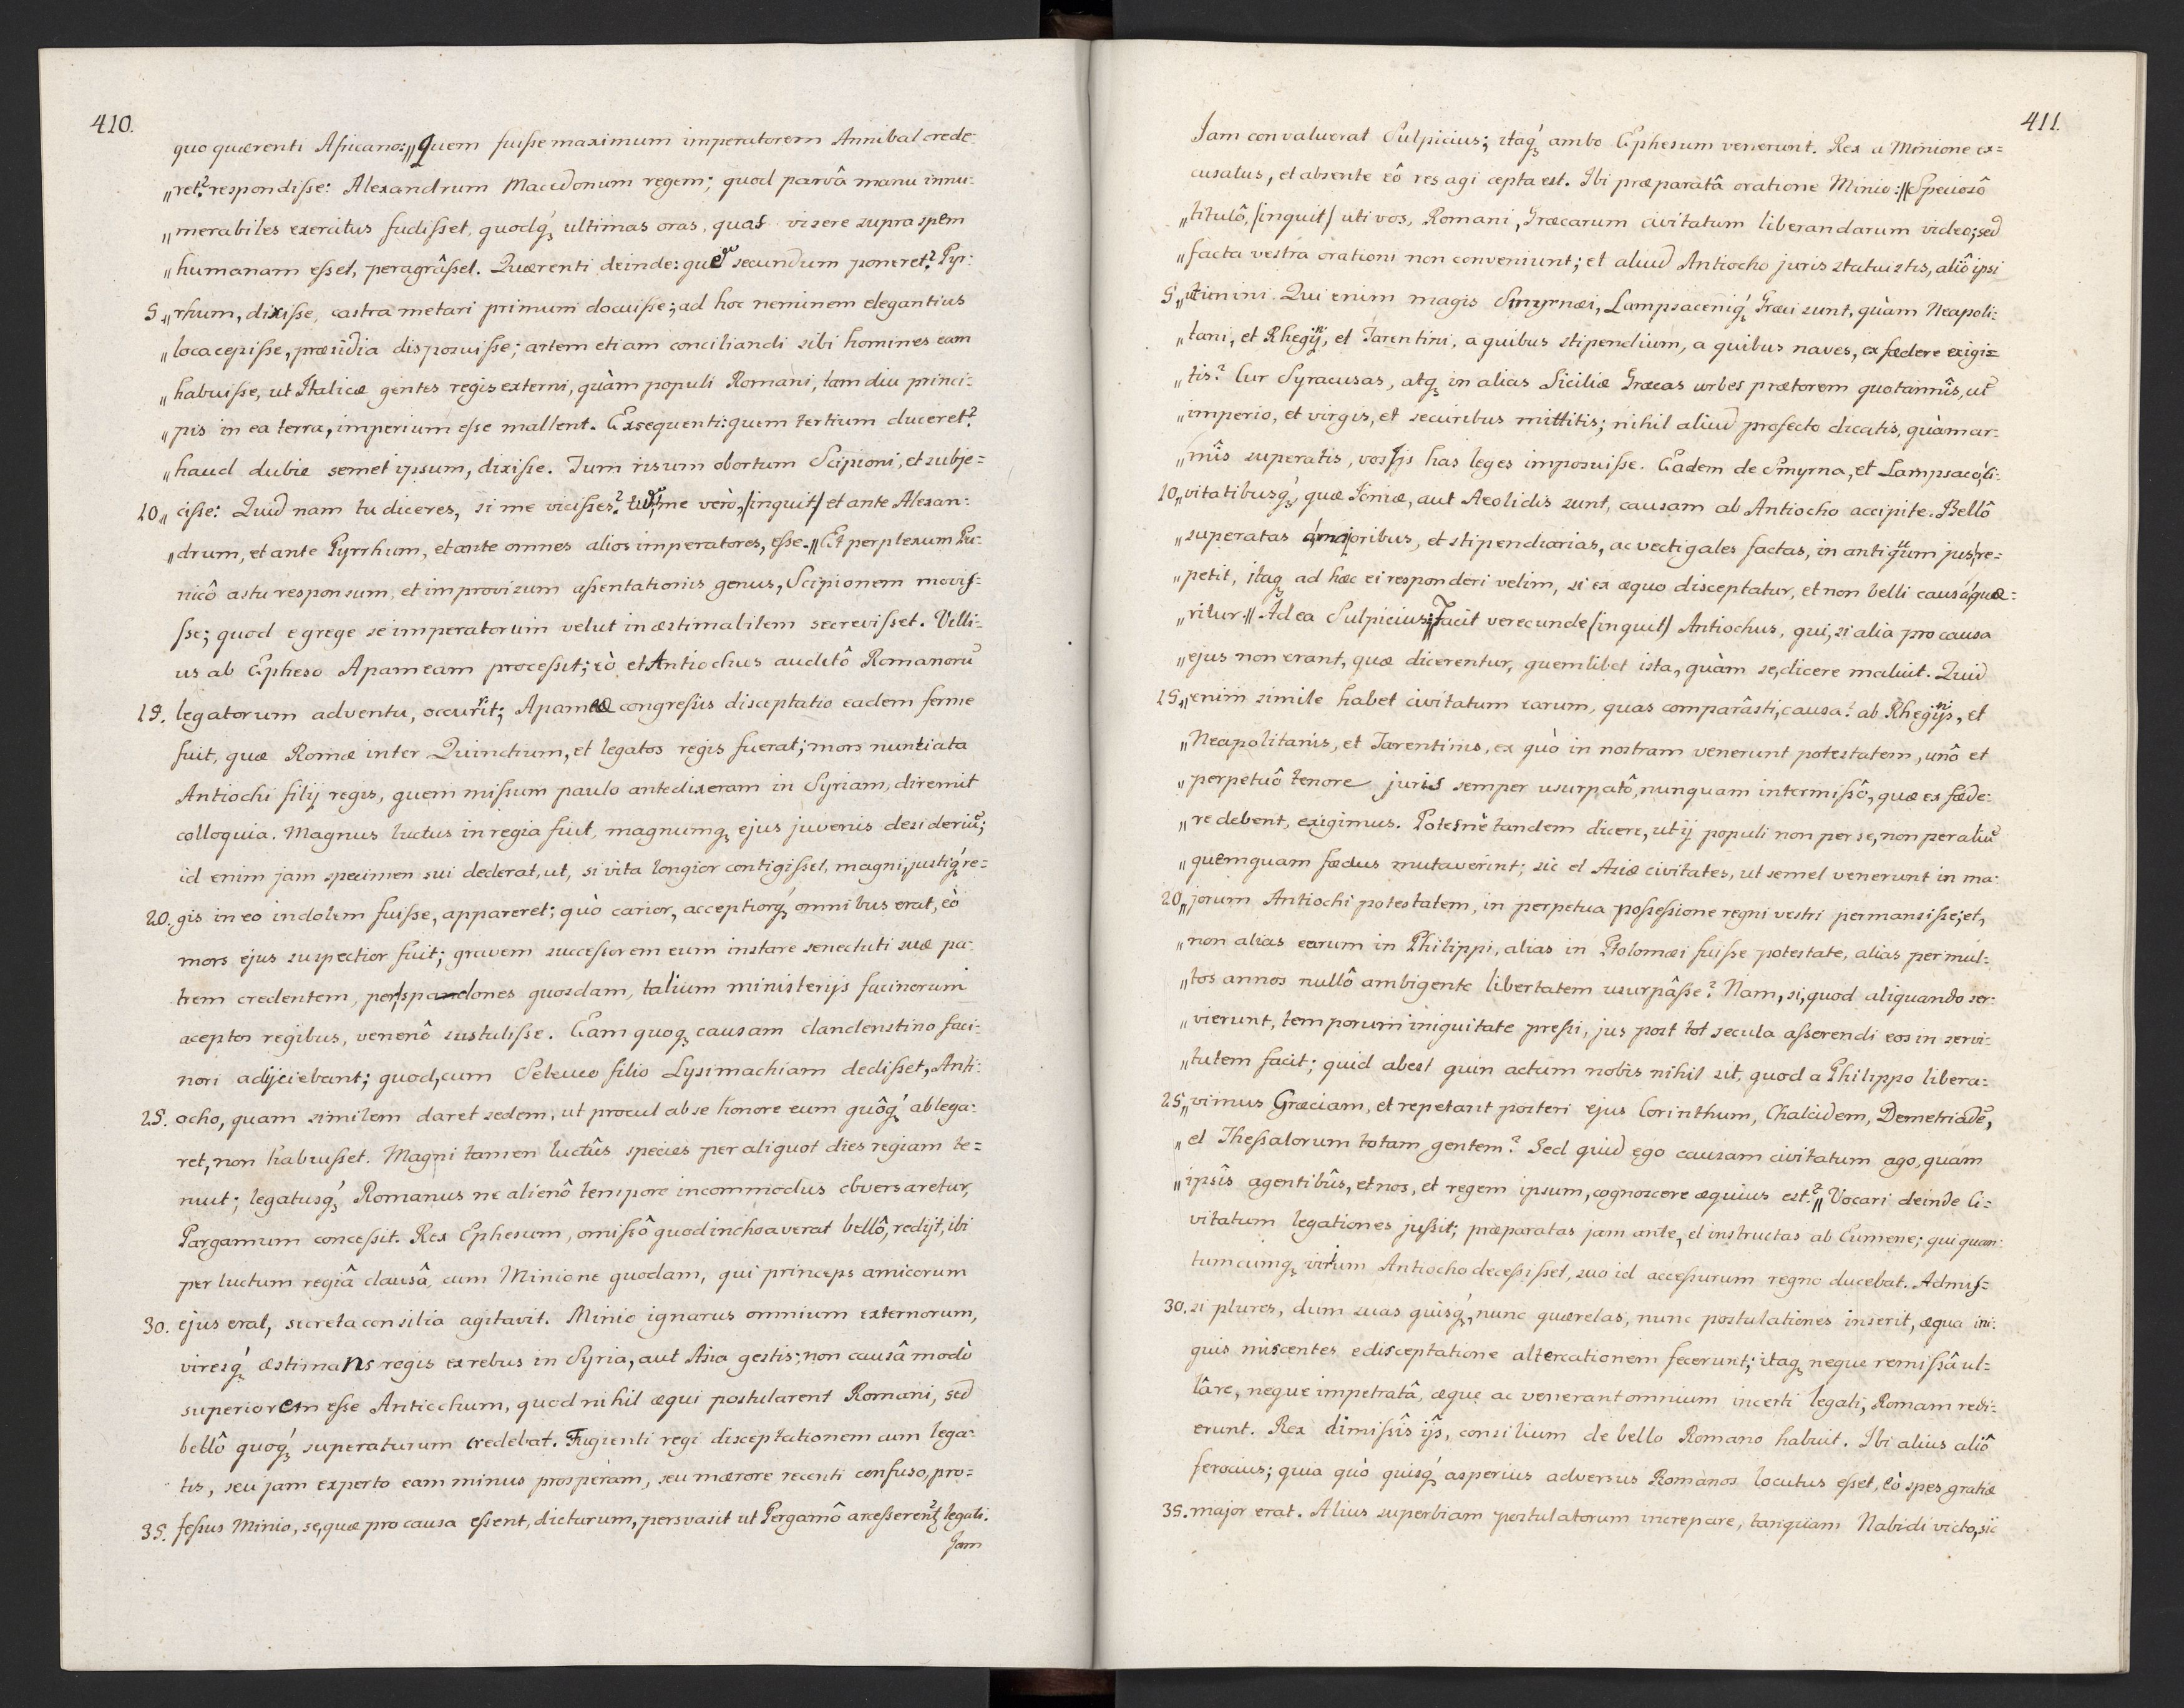 410.
quo quærenti Africano: „Quem fuisse maximum imperatorem Annibal crede-
„ret? respondisse: Alexandrum Macedonum regem; quod parvâ manu innu-
„merabiles exercitus fudisset, quodq́ꝫ ultimas oras, quas visere supra spem
„humanam esset, peragrâsset. Quærenti deinde: quẽ secundum poneret? Pyr-
5 „rhum, dixisse, castra metari primum docuisse; ad hoc neminem elegantius
„loca cepisse, præsidia disposuisse; artem etiam conciliandi sibi homines eam
„habuisse, ut Italicæ gentes regis externi, quàm populi Romani, tam diu princi-
„pis in ea terra, imperium esse mallent. Exsequenti: quem tertium duceret?
„haud dubie semet ipsum, dixisse. Tum risum obortum Scipioni, et subje=
10 „cisse: Quid nam tu diceres, si me vicisses? me verò, [inquit] et ante Alexan-
„drum, et ante Pyrrhum, et ante omnes alios imperatores, esse. „Et perplexum Pu-
nicô astu responsum, et improvisum assentationis genus, Scipionem movis=
sse; quod e grege se imperatorum velut inæstimabilem secrevisset. Villi-
us ab Epheso Apameam processit; eò et Antiochus auditô Romanorũ
15. legatorum adventu, occurrit; Apameæ congressis disceptatio eadem ferme
fuit, quæ Romæ inter Quinctium, et legatos regis fuerat; mors nuntiata
Antiochi filij regis, quem missum paulo ante dixeram in Syriam, diremit
colloquia. Magnus luctus in regia fuit, magnumqꝫ ejus juvenis desideriũ;
id enim jam specimen sui dederat, ut, si vita longior contigisset, magni, justiq́ꝫ re=
20. gis in eo indolem fuisse, appareret; quò carior, acceptiorq́ꝫ omnibus erat, eò
mors ejus suspectior fuit; gravem successorem eum instare senectuti suæ pa-
trem credentem, per spadones quosdam, talium ministerijs facinorum
aceptos regibus, venenô sustulisse. Eam quoqꝫ causam clandenstino faci-
nori adijciebant; quod, cum Seleuco filio Lysimachiam dedisset, Anti-
25. ocho, quam similem daret sedem, ut procul ab se honore eum quôq́ꝫ ablega-
ret, non habuisset. Magni tamen luctûs species per aliquot dies regiam te=
nuit; legatusq́ꝫ Romanus ne alienô tempore incommodus obversaretur,
Pargamum concessit. Rex Ephesum, omissô quod inchoaverat bellô, redijt, ibi
per luctum regiâ clausâ, cum Minione quodam, qui princeps amicorum
30. ejus erat, secreta consilia agitavit. Minio ignarus omnium externorum,
viresq́ꝫ æstimans regis ex rebus in Syria, aut Asia gestis; non causâ modò
superiorem esse Antiochum, quod nihil æqui postularent Romani, sed
bellô quoq́ꝫ superaturum credebat. Fugienti regi disceptationem cum lega-
tis, seu jam experto eam minus prosperam, seu mærore recenti confuso, pro=
35. fessus Minio, se, quæ pro causa essent, dicturum, persvasit ut Pergamô arcesserent legati.
Jam
411.
Jam convaluerat Sulpicius; itaq́ꝫ ambo Ephesum venerunt. Rex a Minione ex=
cusatus, et absente eô res agi cepta est. Ibi præparatâ oratione Minio: „Speciosô
„titulô, [inquit] uti vos, Romani, Græcarum civitatum liberandarum video; sed
„facta vestra orationi non conveniunt; et aliud Antiocho juris statuistis, aliô ipsi
5 „utimini. Qui enim magis Smyrnæi, Lampsaceniq́ꝫ Græci sunt, quàm Neapoli-
„tani, et Rhegini, et Tarentini, a quibus stipendium, a quibus naves, ex fædere exigi=
„tis? Cur Syracusas, atqꝫ in alias Siciliæ Græcas urbes prætorem quotannîs, cũ
„imperio, et virgis, et securibus mittitis; nihil aliud profecto dicatis, quàm ar-
„mîs superatis, vos ijs has leges imposuisse. Eadem de Smyrna, et Lampsaco, ci-
10 „vitatibusq́ꝫ, quæ Ioniæ, aut Aeolidis sunt, causam ab Antiocho accipite. Bellô
„superatas a majoribus, et stipendiarias, ac vectigales factas, in antiquum jus re=
„petit, itaqꝫ ad hæc ei responderi velim, si ex æquo disceptatur, et non belli causa quæ=
„ritur. „Ad ea Sulpicius: „Facit verecunde [inquit] Antiochus, qui, si alia pro causa
„ejus non erant, quæ dicerentur, quemlibet ista, quàm se, dicere maluit. Quid
15 „enim simile habet civitatum earum, quas comparâsti, causa? ab Rheginis, et
„Neapolitanis, et Tarentinis, ex quò in nostram venerunt potestatem, unô et
„perpetuô tenore juris semper usurpatô, nunquam intermissô, quæ ex fæde-
„re debent, exigimus. Potesnè tandem dicere, ut ij populi non per se, non per aliũ
„quemquam fædus mutaverint; sic et Asiæ civitates, ut semel venerunt in ma-
20 „jorum Antiochi potestatem, in perpetua possessione regni vestri permansisse; et,
„non alias earum in Philippi, alias in Ptolomæi fuisse potestate, alias per mul-
„tos annos nullô ambigente libertatem usurpâsse? Nam, si, quod aliquando ser-
„vierunt, temporum iniquitate pressi, jus post tot secula asserendi eos in servi-
„tutem facit; quid abest quin actum nobis nihil sit, quod a Philippo libera-
25 „vimus Græciam, et repetant posteri ejus Corinthum, Chalcidem, Demetriadẽ,
„et Thessalorum totam gentem? Sed quid ego causam civitatum ago, quàm
„ipsîs agentibûs, et nos, et regem ipsum, cognoscere æquius est? „Vocari deinde Ci-
vitatum legationes jussit; præparatas jam ante, et instructas ab Eumene; qui quan-
tumcumqꝫ virium Antiocho decessisset, suo id accessurum regno ducebat. Admis=
30. si plures, dum suas quisq́ꝫ, nunc quærelas, nunc postulationes inserit, æqua ini-
quis miscentes e disceptatione altercationem fecerunt; itaqꝫ neque remissâ ul=
lâ re, neque impetratâ, æque ac venerant omnium incerti legati, Romam redi-
erunt. Rex dimissîs ijs, consilium de bello Romano habuit. Ibi alius aliô
ferocius; quia quò quisq́ꝫ asperius adversus Romanos locutus esset, eò spes gratiæ
35. major erat. Alius superbiam postulatorum increpare, tanquam Nabidi victo, sic